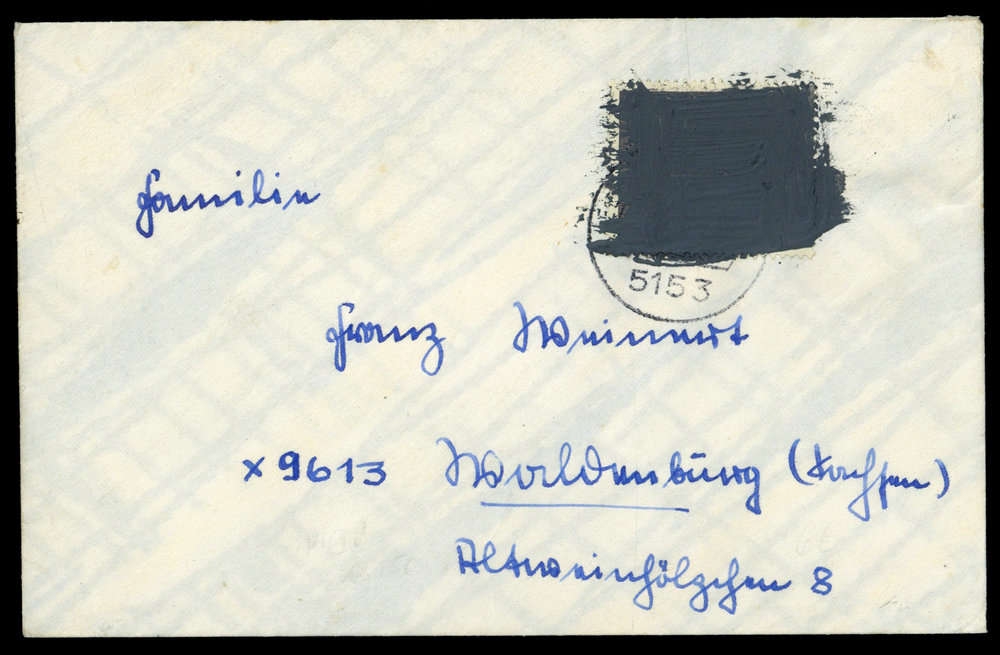 5153
Familie
Franz Weinert
x 9613 Waldenburg (Sachsen)
Altweinhölzchen 8